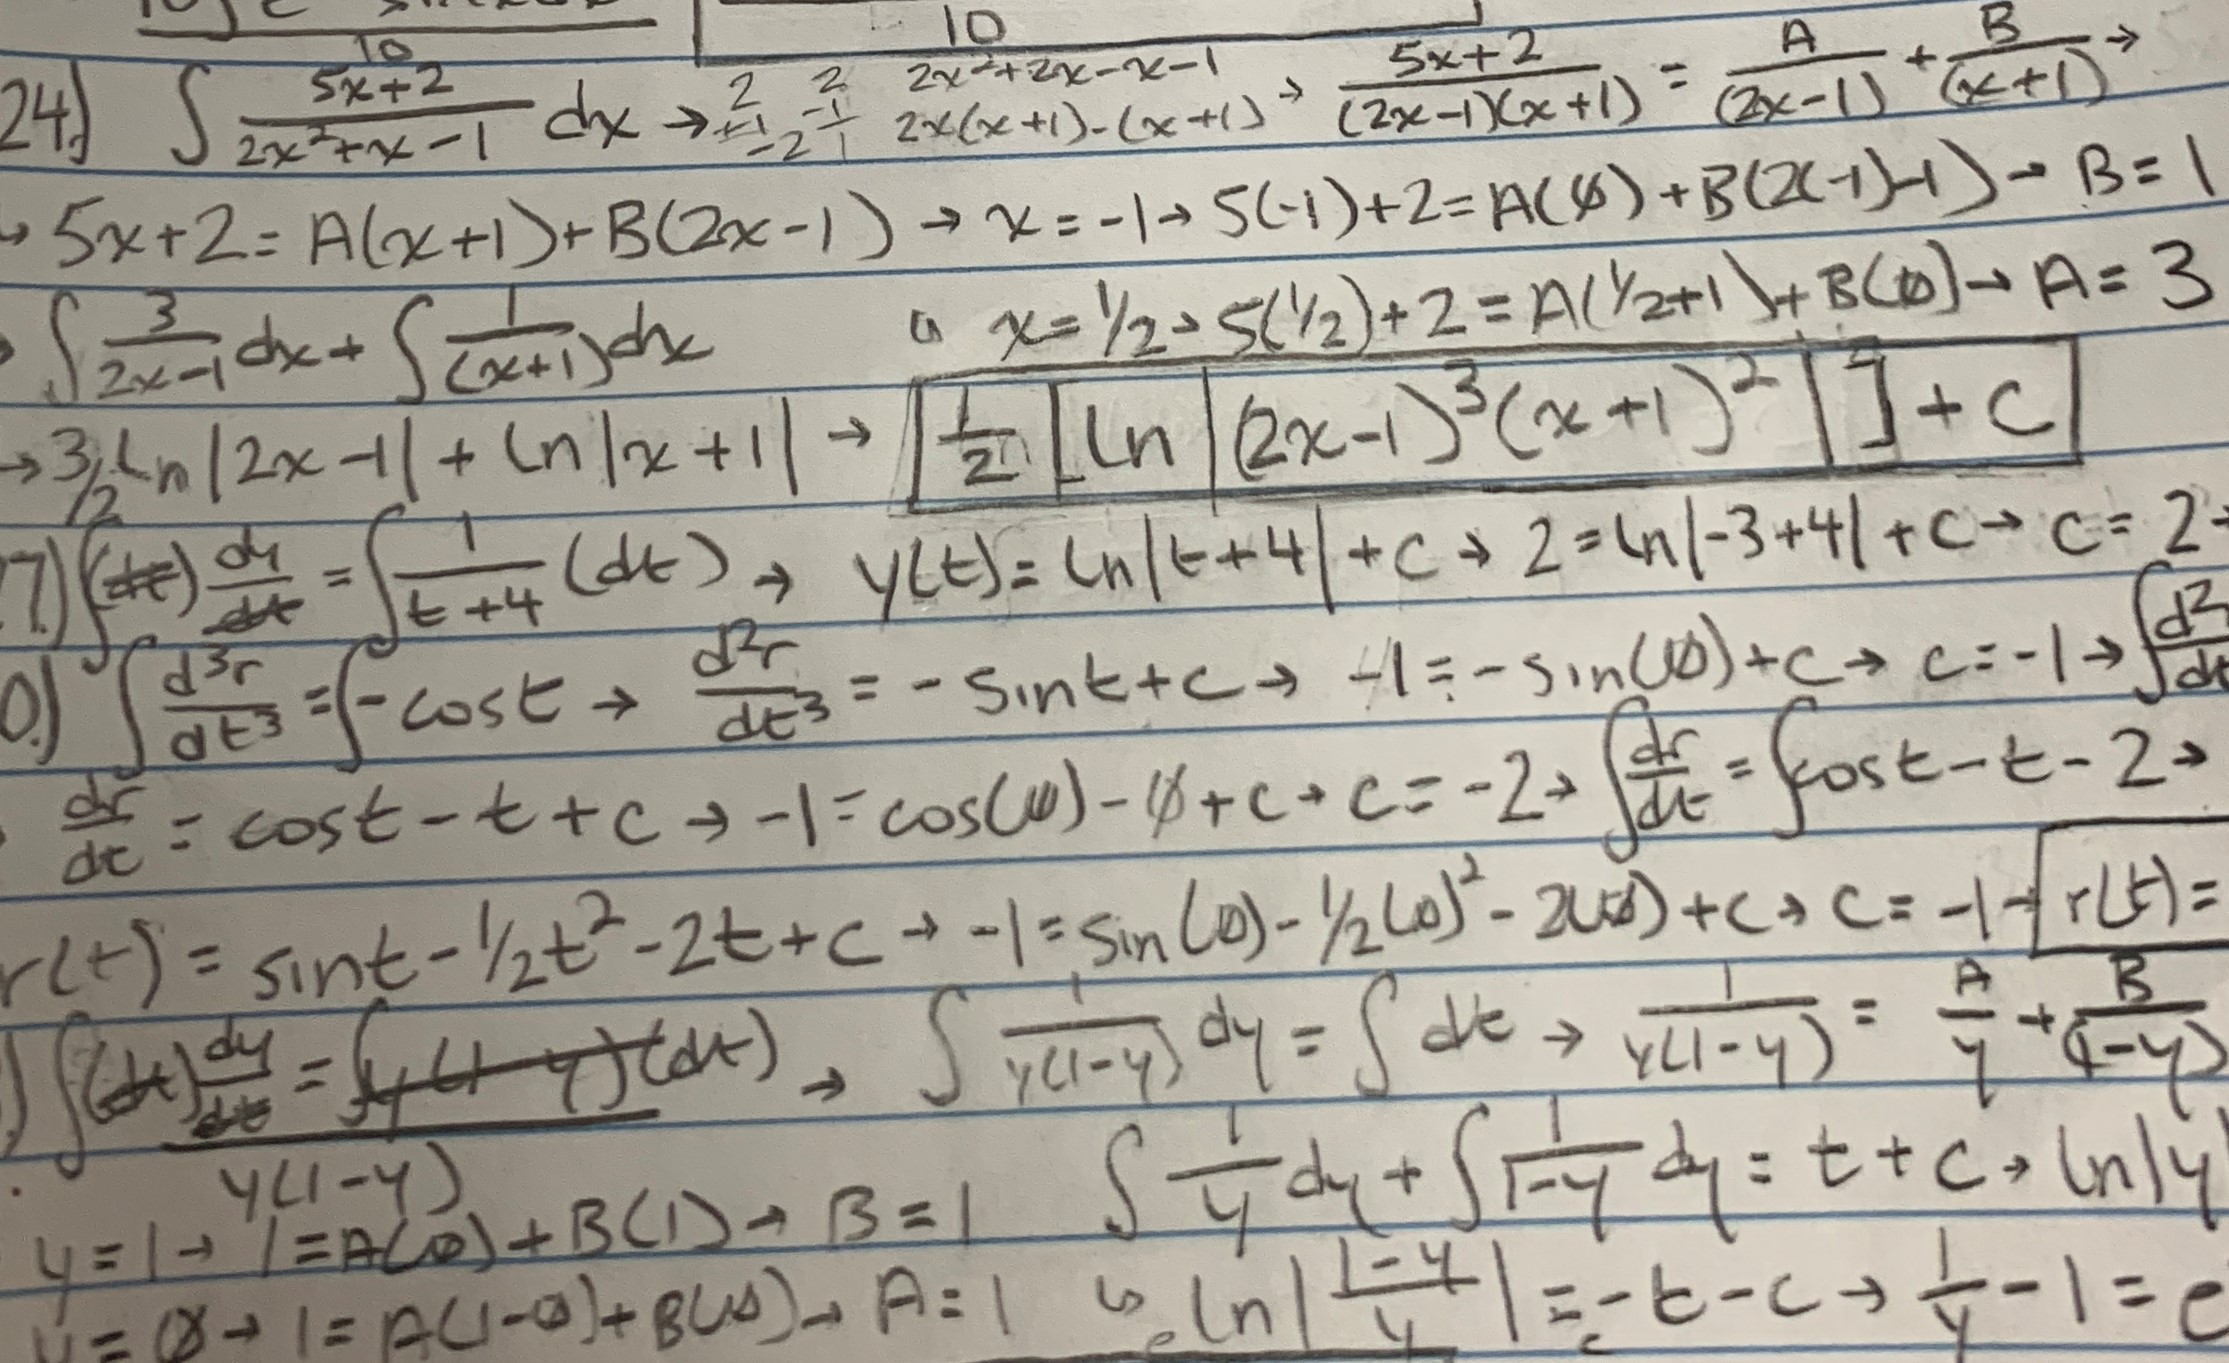 10 10
24.) ∫ (5x+2)/(2x²+x-1) dx → 2x²+2x-x-1 2x(x+1)-(x+1) → (5x+2)/((2x-1)(x+1)) = A/(2x-1) + B/(x+1) →
↳ 5x+2 = A(x+1)+B(2x-1) → x=-1 → 5(-1)+2 = A(0)+B(2(-1)-1) → B=1
∫ 3/(2x-1) dx + ∫ 1/(x+1) dx x=1/2 → 5(1/2)+2 = A(1/2+1)+B(0) → A=3
→ 3/2 ln|2x-1| + ln|x+1| → 1/2 [ln|(2x-1)³(x+1)²|] + C
7.) ∫(dt) dy/dt = ∫ 1/(t+4) (dt) → y(t) = ln|t+4| + C → 2 = ln|-3+4| + C → C = 2 →
0.) ∫ d³r/dt³ = ∫ -cost → d²r/dt³ = -sint + C → -1 = -sin(0) + C → C = -1 → ∫ d²
dr/dt = cost - t + C → -1 = cos(0) - 0 + C → C = -2 → ∫ dr/dt = ∫ cost - t - 2 →
r(t) = sint - 1/2t² - 2t + C → -1 = sin(0) - 1/2(0)² - 2(0) + C → C = -1 → r(t) =
) ∫(dt) dy/dt = ∫ y(1-y)(dt) → ∫ 1/(y(1-y)) dy = ∫ dt → 1/(y(1-y)) = A/y + B/(1-y)
y(1-y)
∫ 1/y dy + ∫ 1/(1-y) dy = t + C → ln|y
y=1 → 1 = A(0) + B(1) → B = 1
y = 0 → 1 = A(1-0) + B(0) → A = 1 ↳ ln|(1-y)/y| = -t - C → 1/y - 1 = e